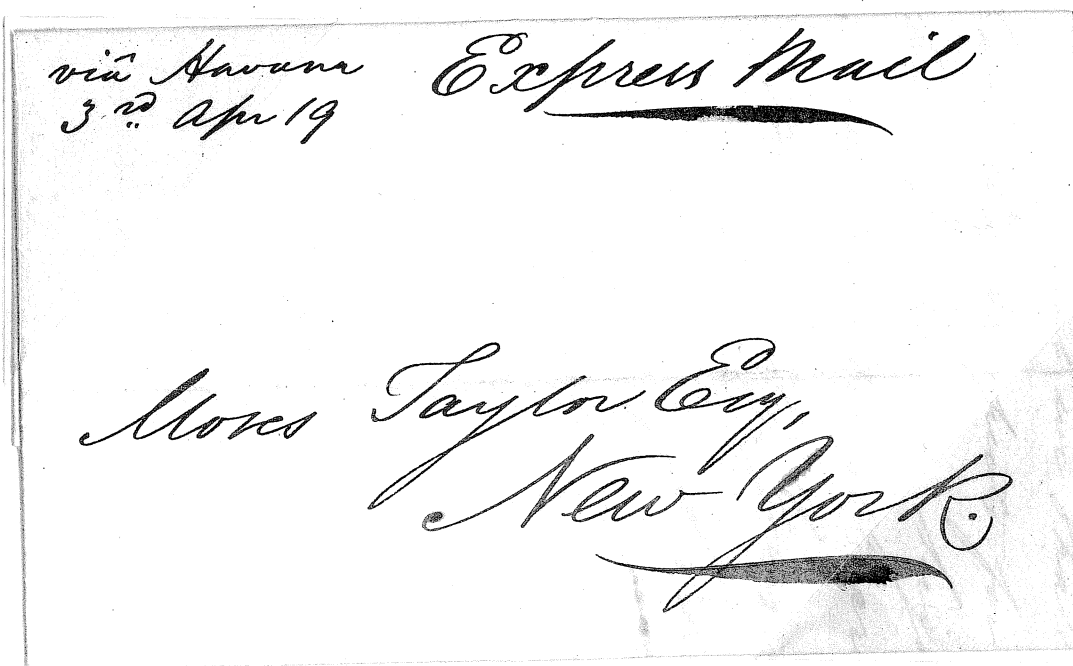 viâ Havana
3rd Apr 19
Express Mail
Moses Taylor Esq,
New York.